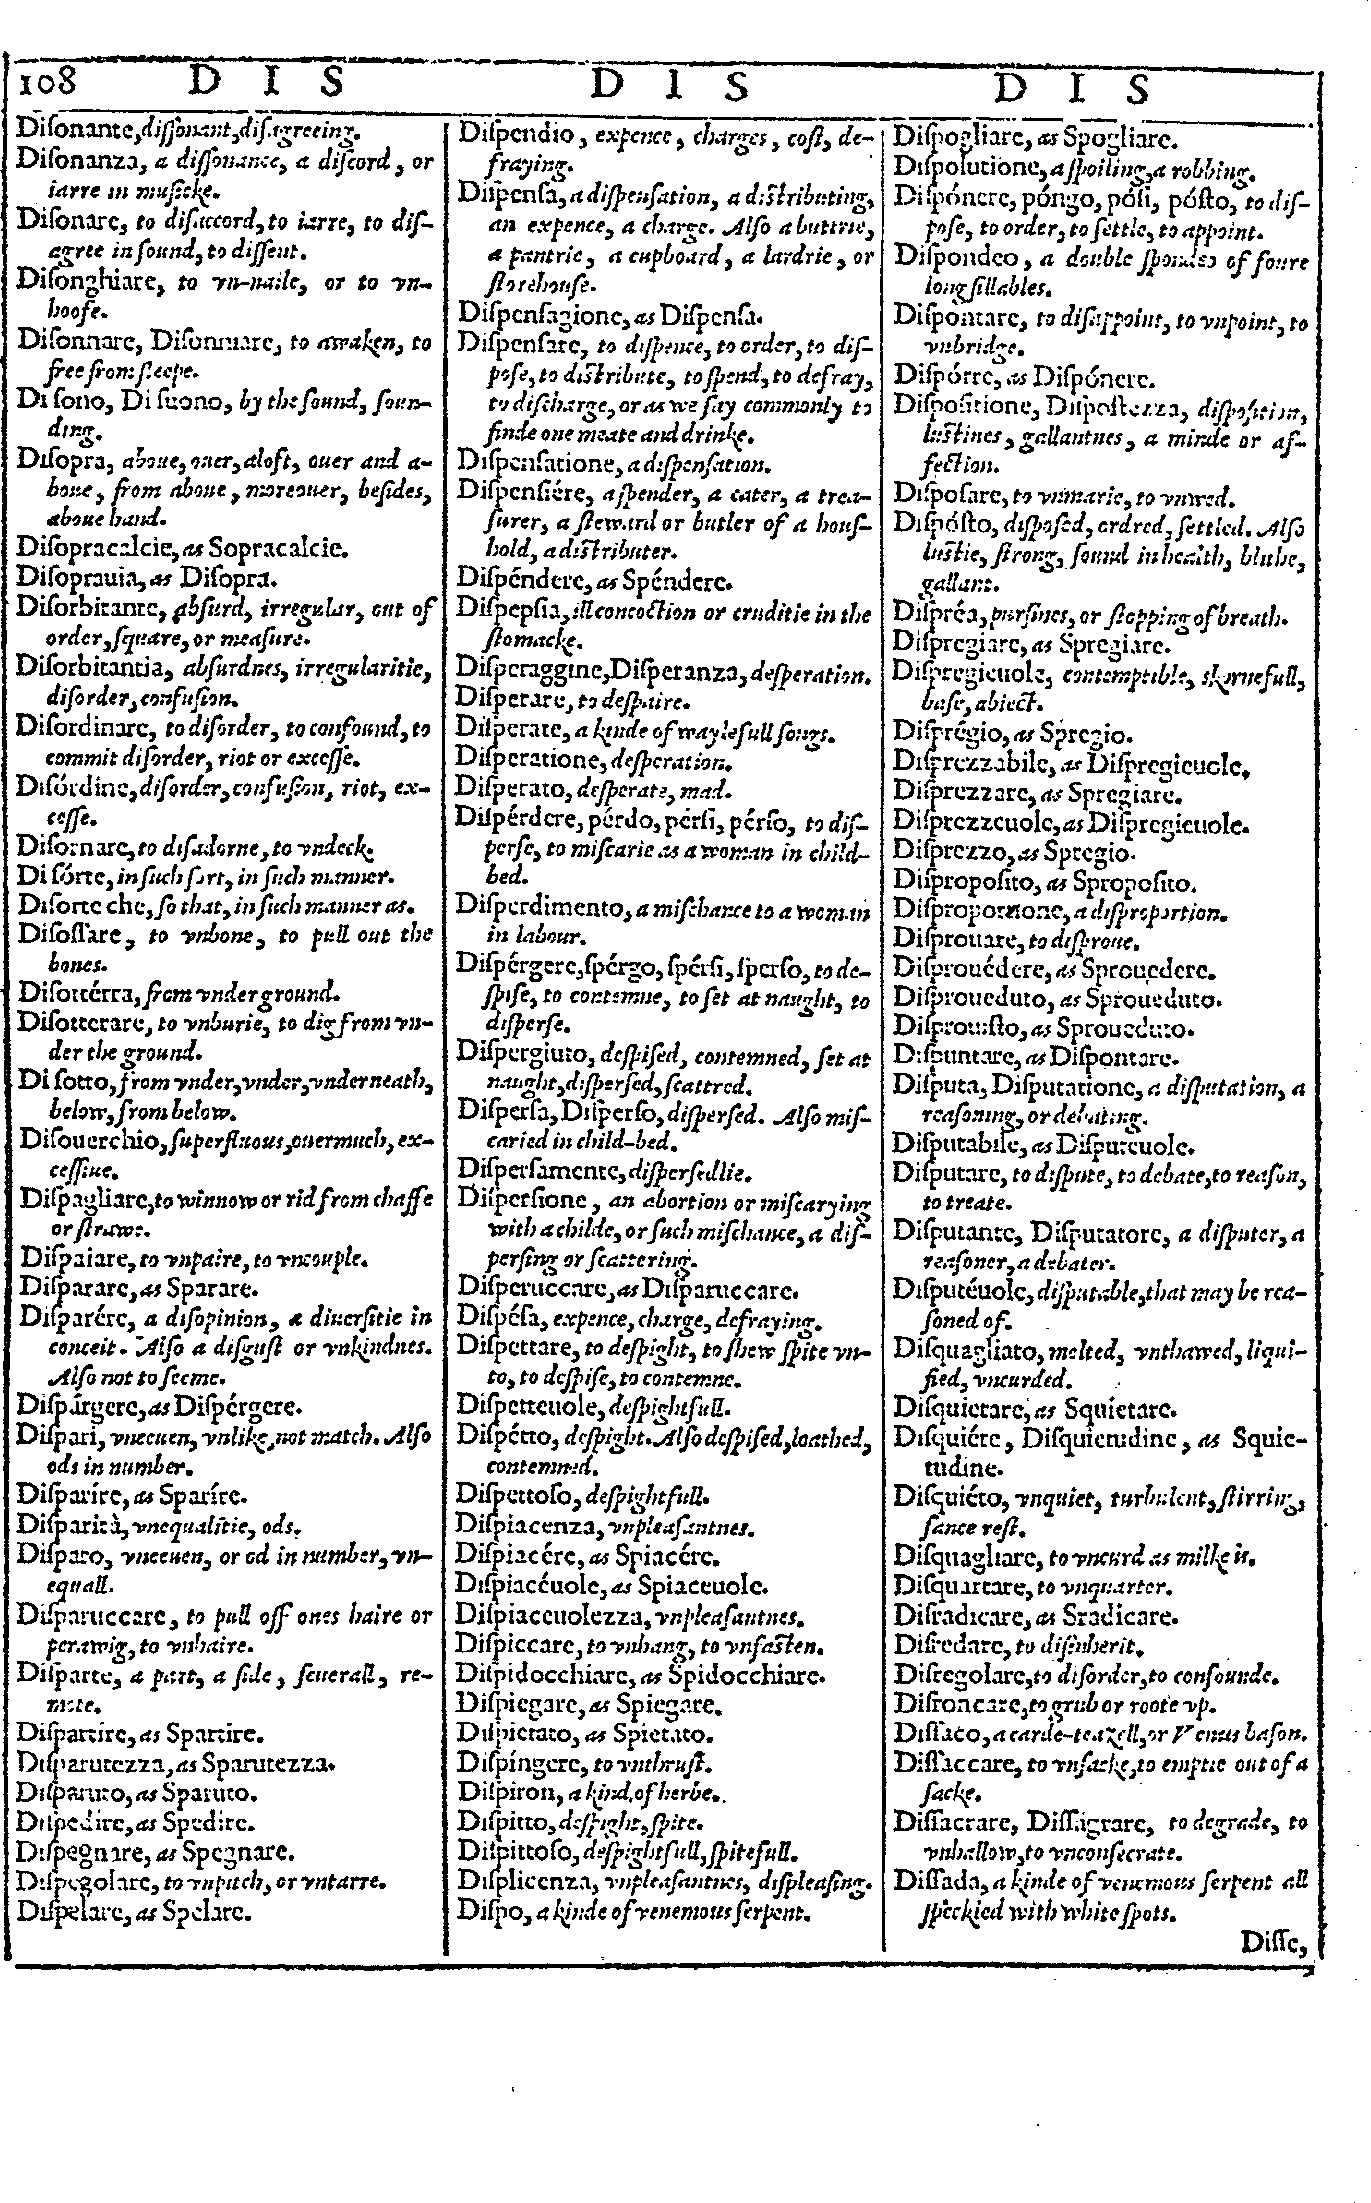 108 D I S D I S D I S
Diſonante, diſſonant, diſagreeing.
Diſonanza, a diſſonance, a diſcord, or
iarre in muſicke.
Diſonare, to diſaccord, to iarre, to diſ-
agree in ſound, to diſſent.
Diſonghiare, to vn-naile, or to vn-
hoofe.
Diſonnare, Diſonniare, to awaken, to
free from ſleepe.
Di ſono, Di ſuono, by the ſound, ſoun-
ding.
Diſopra, aboue, ouer, aloft, ouer and a-
boue, from aboue, moreouer, beſides,
aboue hand.
Diſopracalcie, as Sopracalcie.
Diſoprauia, as Diſopra.
Diſorbitante, abſurd, irregular, out of
order, ſquare, or meaſure.
Diſorbitantia, abſurdnes, irregularitie,
diſorder, confuſion.
Diſordinare, to diſorder, to confound, to
commit diſorder, riot or exceſſe.
Diſórdine, diſorder, confuſion, riot, ex-
ceſſe.
Diſornare, to diſadorne, to vndeck.
Di ſórte, in ſuch ſort, in ſuch manner.
Diſorte che, ſo that, in ſuch manner as.
Diſoſſare, to vnbone, to pull out the
bones.
Diſottérra, from vnder ground.
Diſotterare, to vnburie, to dig from vn-
der the ground.
Di ſotto, from vnder, vnder, vnderneath,
below, from below.
Diſouerchio, ſuperfluous, ouermuch, ex-
ceſſiue.
Diſpagliare, to winnow or rid from chaffe
or ſtrawe.
Diſpaiare, to vnpaire, to vncouple.
Diſparare, as Sparare.
Diſparére, a diſopinion, a diuerſitie in
conceit. Alſo a diſguſt or vnkindnes.
Alſo not to ſeeme.
Diſpárgere, as Diſpérgere.
Diſpari, vneuen, vnlike, not match. Alſo
ods in number.
Diſparíre, as Sparíre.
Diſparità, vnequalitie, ods.
Diſparo, vneeuen, or od in number, vn-
equall.
Diſparuccare, to pull off ones haire or
perawig, to vnhaire.
Diſparte, a part, a ſide, ſeuerall, re-
mote.
Diſpartíre, as Spartíre.
Diſparutezza, as Sparutezza.
Diſparuto, as Sparuto.
Diſpedire, as Spedire.
Diſpegnare, as Spegnare.
Diſpegolare, to vnpitch, or vntarre.
Diſpelare, as Spelare.
Diſpendio, expence, charges, coſt, de-
fraying.
Diſpenſa, a diſpenſation, a diſtributing,
an expence, a charge. Alſo a buttrie,
a pantrie, a cupboard, a lardrie, or
ſtorehouſe.
Diſpenſagione, as Diſpenſa.
Diſpenſare, to diſpence, to order, to diſ-
poſe, to diſtribute, to ſpend, to defray,
to diſcharge, or as we ſay commonly to
finde one meate and drinke.
Diſpenſatione, a diſpenſation.
Diſpenſiére, a ſpender, a cater, a trea-
ſurer, a ſteward or butler of a houſ-
hold, a diſtributer.
Diſpéndere, as Spéndere.
Diſpepſia, ill concoction or cruditie in the
ſtomacke.
Diſperaggine, Diſperanza, deſperation.
Diſperare, to deſpaire.
Diſperate, a kinde of waylefull ſongs.
Diſperatione, deſperation.
Diſperato, deſperate, mad.
Diſpérdere, pérdo, pérſi, pérſo, to diſ-
perſe, to miſcarie as a woman in child-
bed.
Diſperdimento, a miſchance to a woman
in labour.
Diſpérgere, ſpérgo, ſpérſi, ſperſo, to de-
ſpiſe, to contemne, to ſet at naught, to
diſperſe.
Diſpergiuto, deſpiſed, contemned, ſet at
naught, diſperſed, ſcattred.
Diſperſa, Diſperſo, diſperſed. Alſo miſ-
caried in child-bed.
Diſperſamente, diſperſedlie.
Diſperſione, an abortion or miſcarying
with a childe, or ſuch miſchance, a diſ-
perſing or ſcattering.
Diſperuccare, as Diſparuccare.
Diſpéſa, expence, charge, defraying.
Diſpettare, to deſpight, to ſhew ſpite vn-
to, to deſpiſe, to contemne.
Diſpetteuole, deſpightfull.
Diſpétto, deſpight. Alſo deſpiſed, loathed,
contemned.
Diſpettoſo, deſpightfull.
Diſpiacenza, vnpleaſantnes.
Diſpiacére, as Spiacére.
Diſpiacéuole, as Spiaceuole.
Diſpiaceuolezza, vnpleaſantnes.
Diſpiccare, to vnhang, to vnfaſten.
Diſpidocchiare, as Spidocchiare.
Diſpiegare, as Spiegare.
Diſpietato, as Spietato.
Diſpíngere, to vnthruſt.
Diſpiron, a kind of herbe.
Diſpitto, deſpight, ſpite.
Diſpittoſo, deſpightfull, ſpitefull.
Diſplicenza, vnpleaſantnes, diſpleaſing.
Diſpo, a kinde of venemous ſerpent.
Diſpogliare, as Spogliare.
Diſpolutione, a ſpoiling, a robbing.
Diſpónere, póngo, póſi, póſto, to diſ-
poſe, to order, to ſettle, to appoint.
Diſpondeo, a double ſpondeo of foure
long ſillables.
Diſpontare, to diſappoint, to vnpoint, to
vnbridge.
Diſpórre, as Diſpónere.
Diſpoſitione, Diſpoſtezza, diſpoſition,
luſtines, gallantnes, a minde or af-
fection.
Diſpoſare, to vnmarie, to vnwed.
Diſpóſto, diſpoſed, ordred, ſettled. Alſo
luſtie, ſtrong, ſound in health, blithe,
gallant.
Diſpréa, purſines, or ſtopping of breath.
Diſpregiare, as Spregiare.
Diſpregieuole, contemptible, ſkornefull,
baſe, abiect.
Diſprégio, as Spregio.
Diſprezzabile, as Diſpregieuole.
Diſprezzare, as Spregiare.
Diſprezzeuole, as Diſpregieuole.
Diſprezzo, as Spregio.
Diſpropoſito, as Spropoſito.
Diſproportione, a diſproportion.
Diſprouare, to diſproue.
Diſprouédere, as Sprouedere.
Diſproueduto, as Sproueduto.
Diſprouiſto, as Sproueduto.
Diſpuntare, as Diſpontare.
Diſputa, Diſputatione, a diſputation, a
reaſoning, or debating.
Diſputabile, as Diſputeuole.
Diſputare, to diſpute, to debate, to reaſon,
to treate.
Diſputante, Diſputatore, a diſputer, a
reaſoner, a debater.
Diſputéuole, diſputable, that may be rea-
ſoned of.
Diſquagliato, melted, vnthawed, liqui-
fied, vncurded.
Diſquietare, as Squietare.
Diſquiéte, Diſquietudine, as Squie-
tudine.
Diſquiéto, vnquiet, turbulent, ſtirring,
ſance reſt.
Diſquagliare, to vncurd as milke is.
Diſquartare, to vnquarter.
Diſradicare, as Sradicare.
Diſredare, to diſinherit.
Diſregolare, to diſorder, to confounde.
Diſroncare, to grub or roote vp.
Diſſaco, a carde-teazell, or Venus baſon.
Diſſaccare, to vnſacke, to emptie out of a
ſacke.
Diſſacrare, Diſſagrare, to degrade, to
vnhallow, to vnconſecrate.
Diſſada, a kinde of venemous ſerpent all
ſpeckled with white ſpots.
Diſſe,